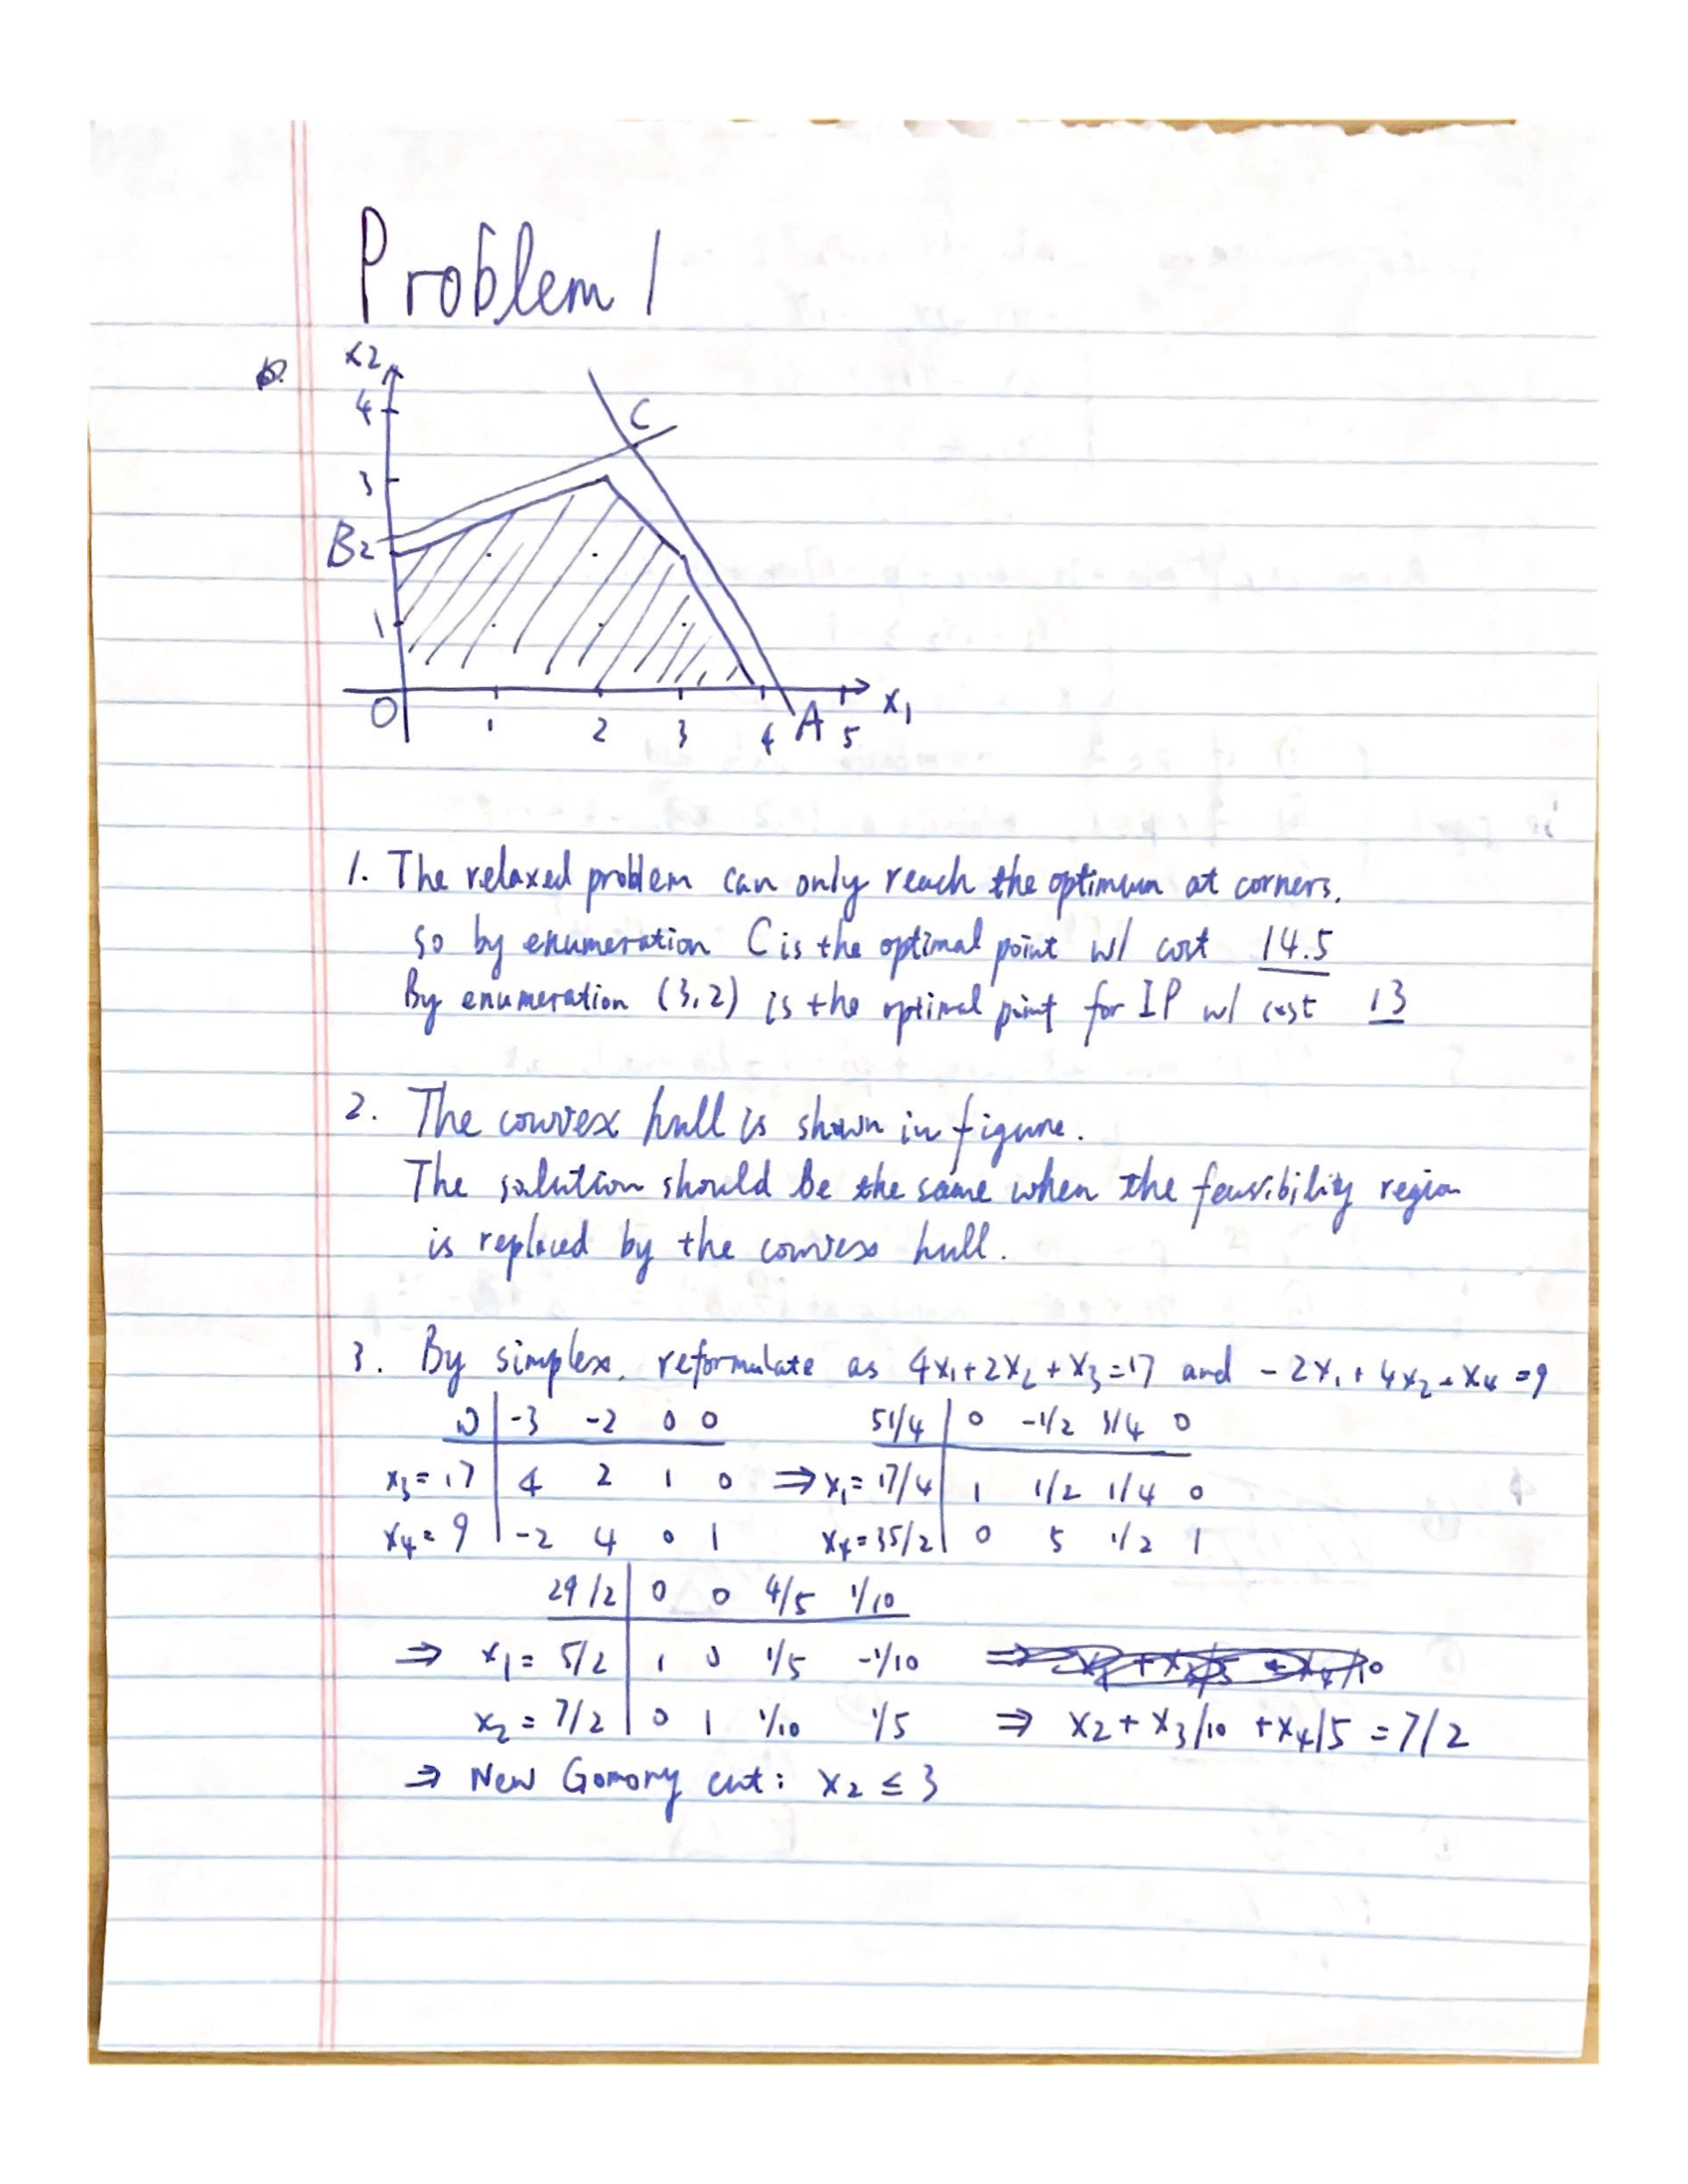 Problem 1
x2
4
C
3
B 2
1
O 1 2 3 4 A 5 x₁
1. The relaxed problem can only reach the optimum at corners,
so by enumeration C is the optimal point w/ cost 14.5
By enumeration (3,2) is the optimal point for IP w/ cost 13
2. The convex hull is shown in figure.
The solution should be the same when the feasibility region
is replaced by the convex hull.
3. By simplex, reformulate as 4x₁+2x₂+x₃=17 and -2x₁+4x₂+x₄=9
0 | -3 -2 0 0 51/4 | 0 -1/2 3/4 0
x₃=17 | 4 2 1 0 ⇒ x₁=17/4 | 1 1/2 1/4 0
x₄=9 | -2 4 0 1 x₄=35/2 | 0 5 1/2 1
29/2 | 0 0 4/5 1/10
⇒ x₁=5/2 | 1 0 1/5 -1/10
x₂=7/2 | 0 1 1/10 1/5 ⇒ x₂+x₃/10+x₄/5=7/2
⇒ New Gomory cut: x₂ ≤ 3